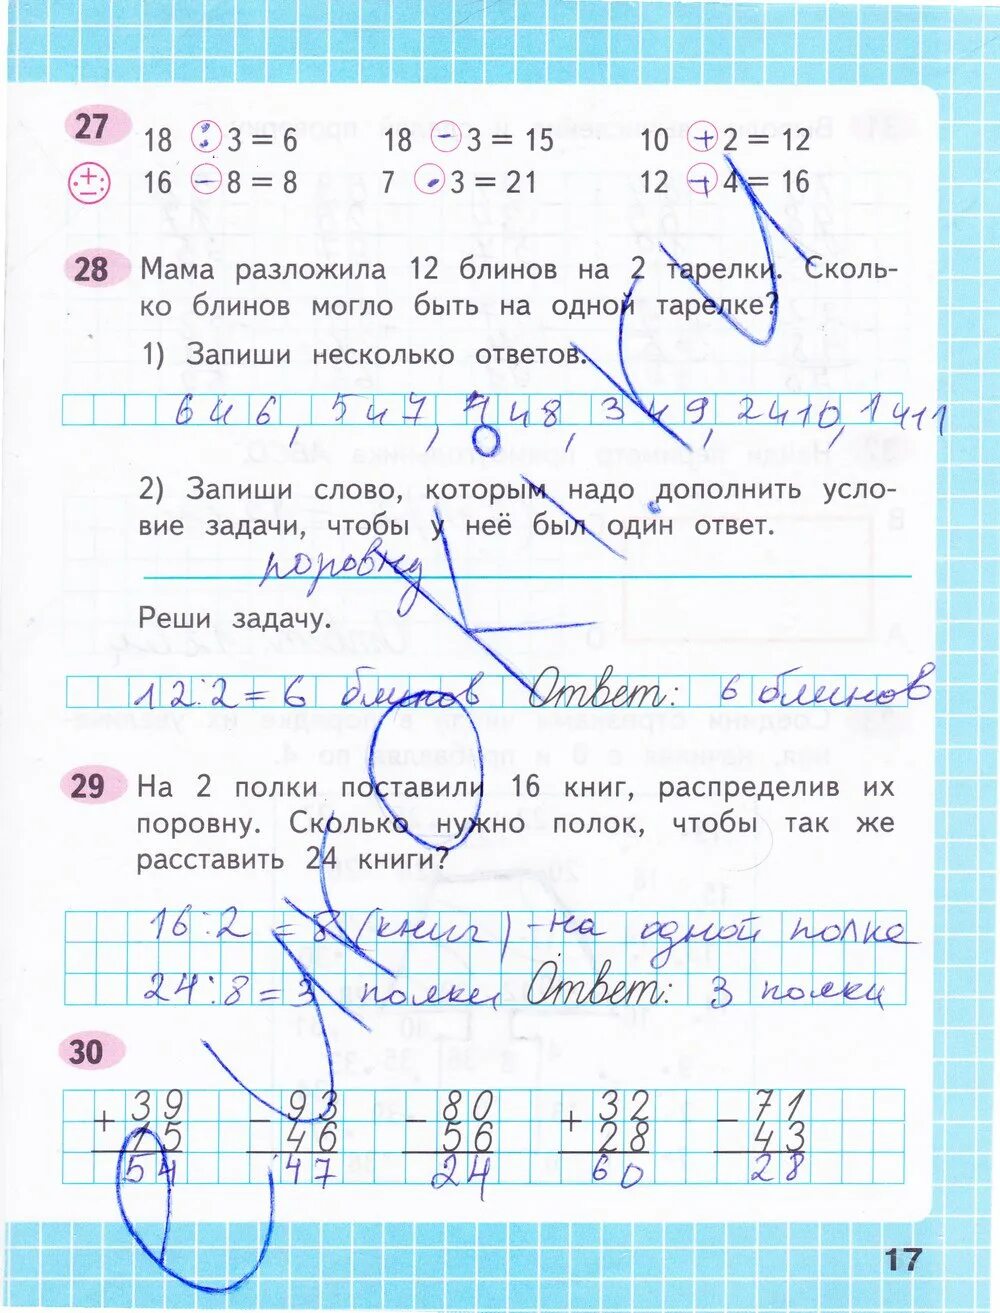 27
18 : 3 = 6 18 - 3 = 15 10 + 2 = 12
16 - 8 = 8 7 · 3 = 21 12 + 4 = 16
28 Мама разложила 12 блинов на 2 тарелки. Сколь-
ко блинов могло быть на одной тарелке?
1) Запиши несколько ответов.
6 и 6, 5 и 7, 4 и 8, 3 и 9, 2 и 10, 1 и 11
2) Запиши слово, которым надо дополнить усло-
вие задачи, чтобы у неё был один ответ.
поровну
Реши задачу.
12 : 2 = 6 блинов Ответ: 6 блинов
29 На 2 полки поставили 16 книг, распределив их
поровну. Сколько нужно полок, чтобы так же
расставить 24 книги?
16 : 2 = 8 (книг) - на одной полке
24 : 8 = 3 полки Ответ: 3 полки
30
+ 39 - 93 - 80 + 32 - 71
15 46 56 28 43
54 47 24 60 28
17